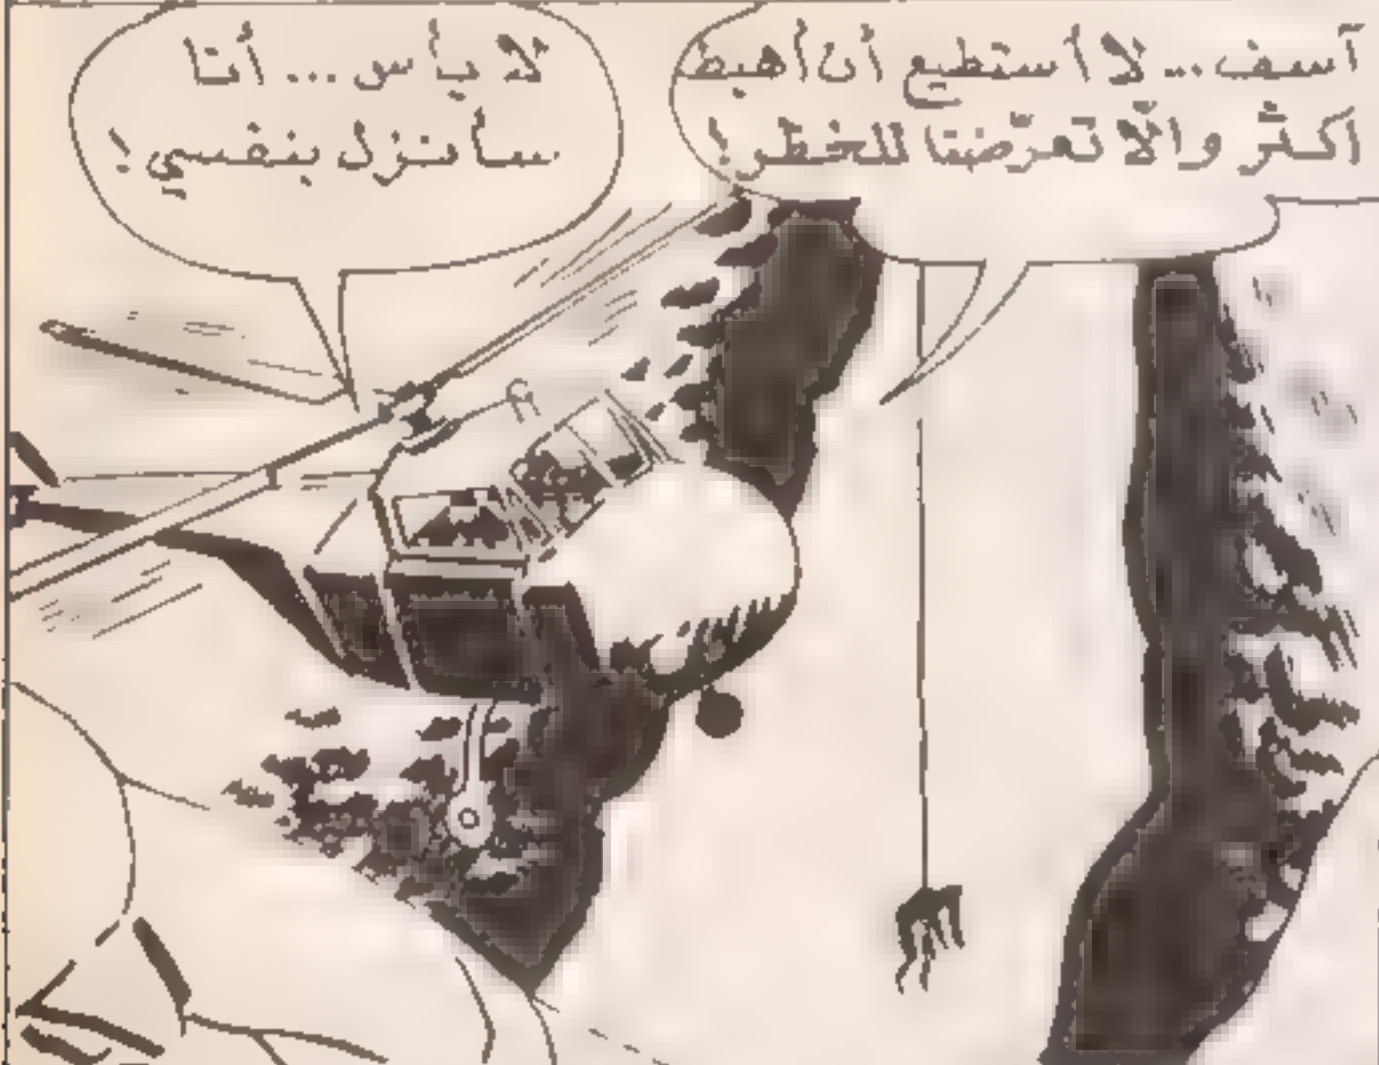 آسف... لا أستطيع أن أهبط
أكثر وإلّا تعرّضنا للخطر!
لا بأس... أنا
سأنزل بنفسي!